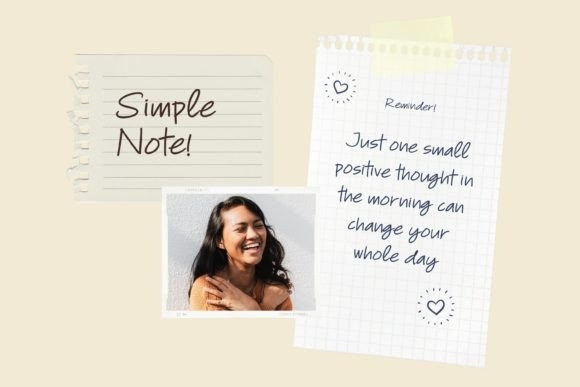 Simple
Note!
Reminder!
Just one small
positive thought in
the morning can
change your
whole day